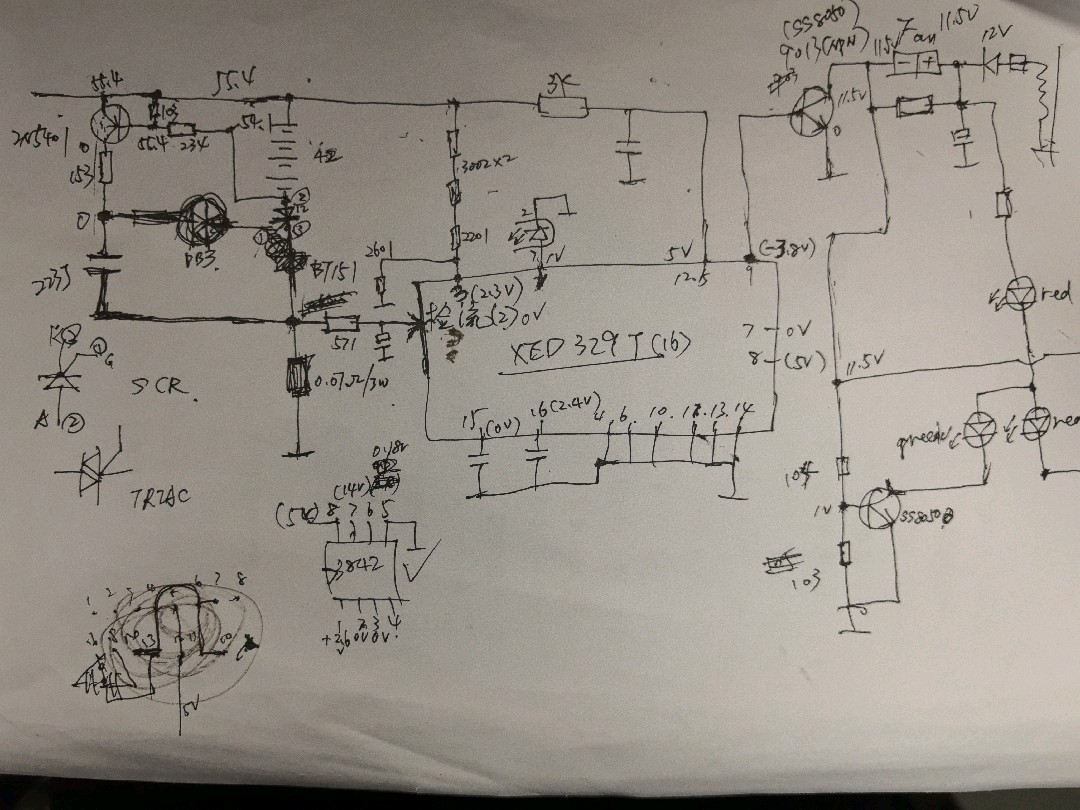 (SS8050)
9013(NPN)
11.5V
Fan
11.5V
12V
55.4
55.4
3K
103
54.1
11.5V
0
2N5401
0
55.4
234
153
3002x2
2
0
2201
2601
1V
5V
12.5
(-3.8V)
9
DB3
BT151
223J
3(2.3V)
检流(2)0V
red
571
XED 329T(16)
7
0V
8
(5V)
K
G
SCR
0.07Ω/3W
11.5V
A②
15
(0V)
16(2.4V)
4
6
10
13
14
TRIAC
0.18V
(14V)
(5V)
8 7 6 5
3842
104
1V
SS8050
103
1 2 3 4
5V